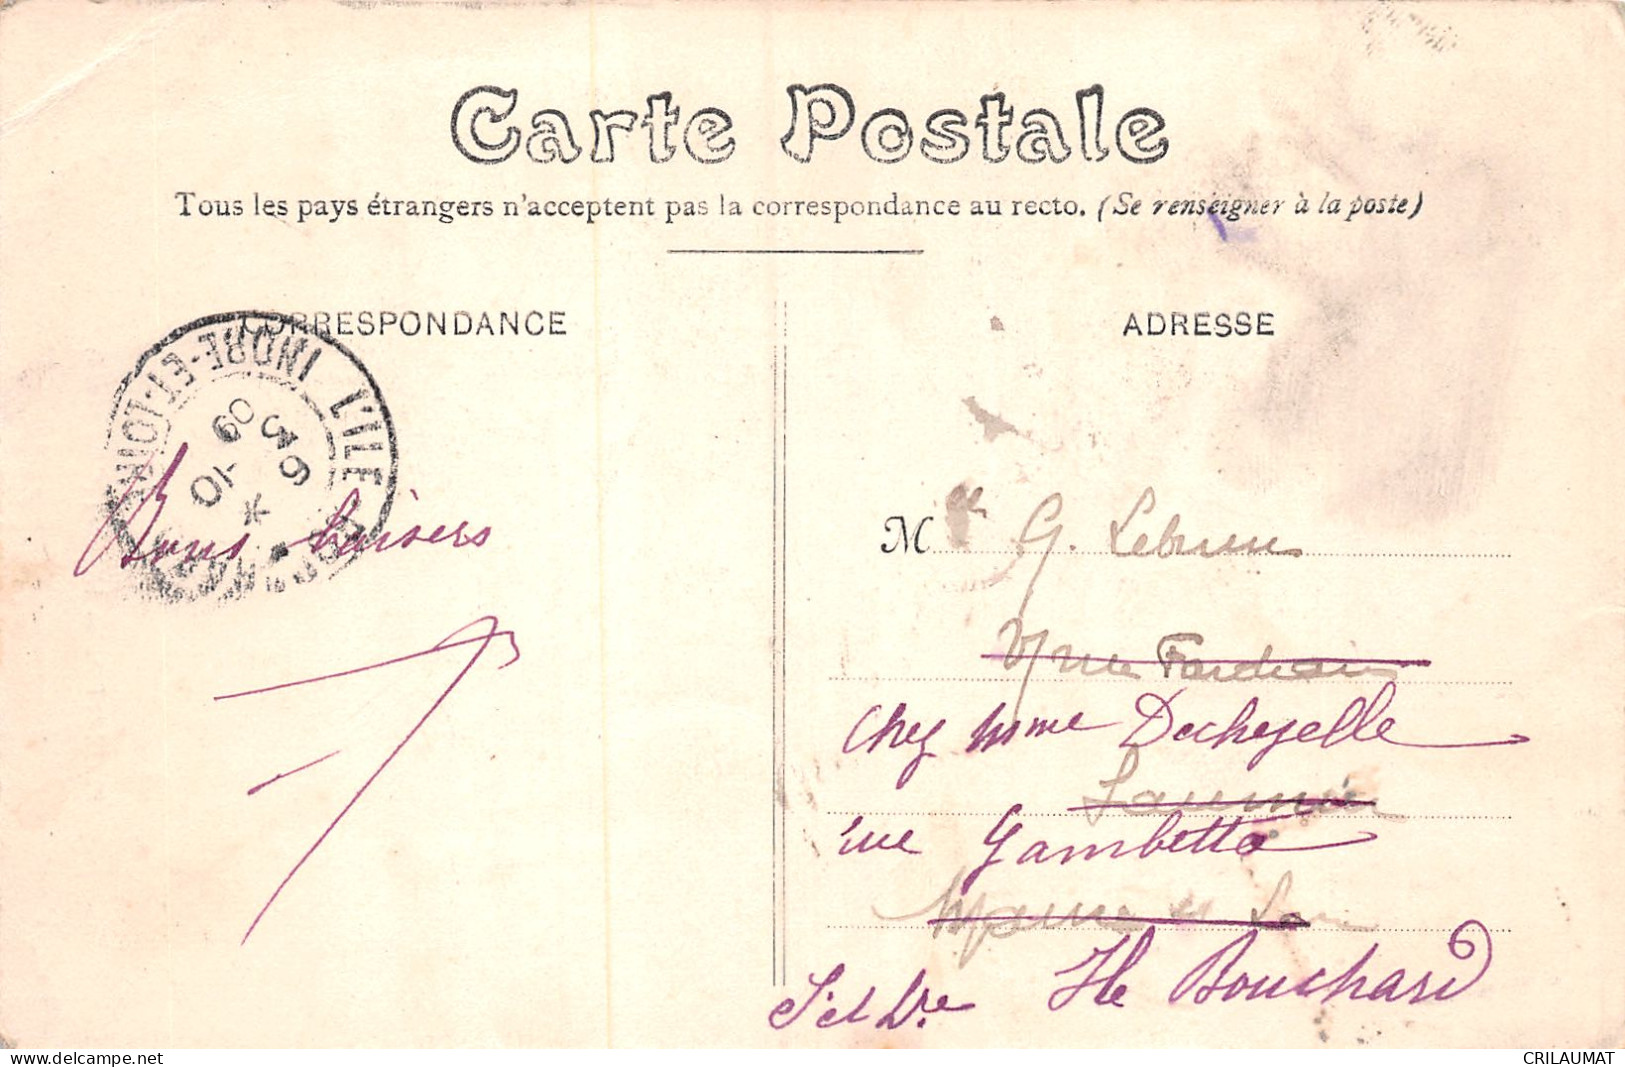 Carte Postale
Tous les pays étrangers n'acceptent pas la correspondance au recto. (Se renseigner à la poste)
CORRESPONDANCE
ADRESSE
L'ILE INDRE-ET-LOIRE
6 45
* 10 09
Bons baisers
Mlle G. Lebrun
rue
Chez Mme Dechezelle
Saumur
rue Gambetta
Maine et Loire
Ile Bouchard
I et Lre
www.delcampe.net
CRILAUMAT